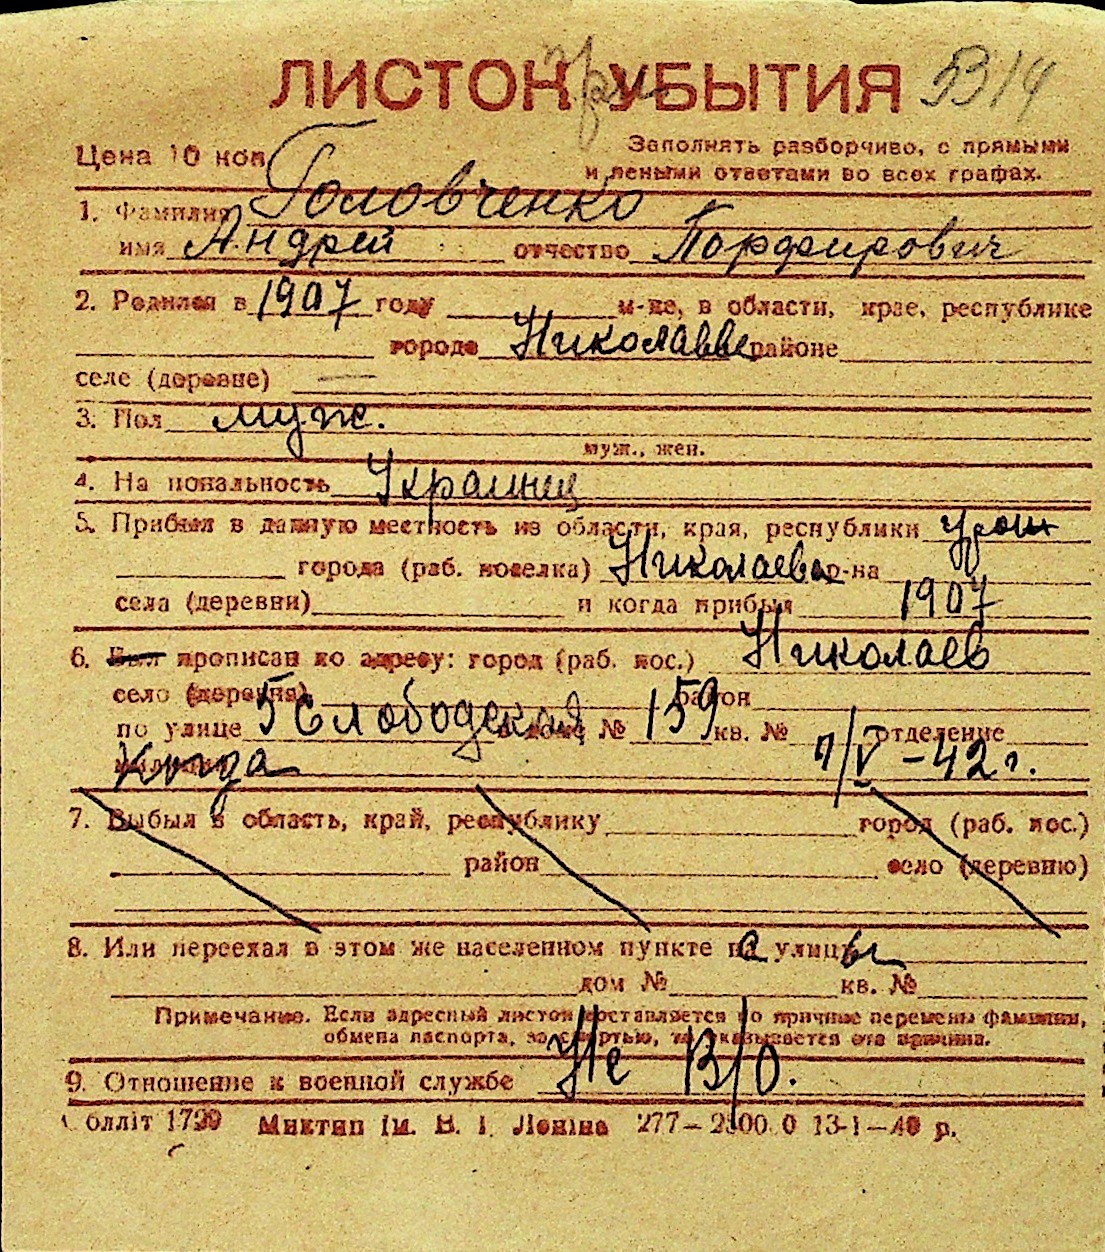 ЛИСТОК при УБЫТИЯ 53/4
Цена 10 коп.
Заполнять разборчиво, с прямыми
и ясными ответами во всех графах.
1. Фамилия Головченко
имя Андрей отчество Порфирович
2. Родился в 1907 году м-це, в области, крае, республике
городе Николаеве районе
селе (деревне) —
3. Пол муж.
муж., жен.
4. Национальность Украинец
5. Прибыл в данную местность из области, края, республики
города (раб. поселка) Николаева р-на
села (деревни) и когда прибыл 1907
6. Был прописан по адресу: город (раб. пос.) Николаев
село (деревня) район
по улице 5 Слободская в доме № 159 кв. № отделение
милиции Когда 1/V – 42 г.
7. Выбыл в область, край, республику город (раб. пос.)
район село (деревню)
8. Или переехал в этом же населенном пункте на улицы
дом № кв. №
Примечание. Если адресный листок составляется по причине перемены фамилии,
обмена паспорта, за смертью, то указывается эта причина.
9. Отношение к военной службе Не В/О.
олліт 1799 Миктип ім. В. І. Леніна 277—2500 0 13-1—40 р.